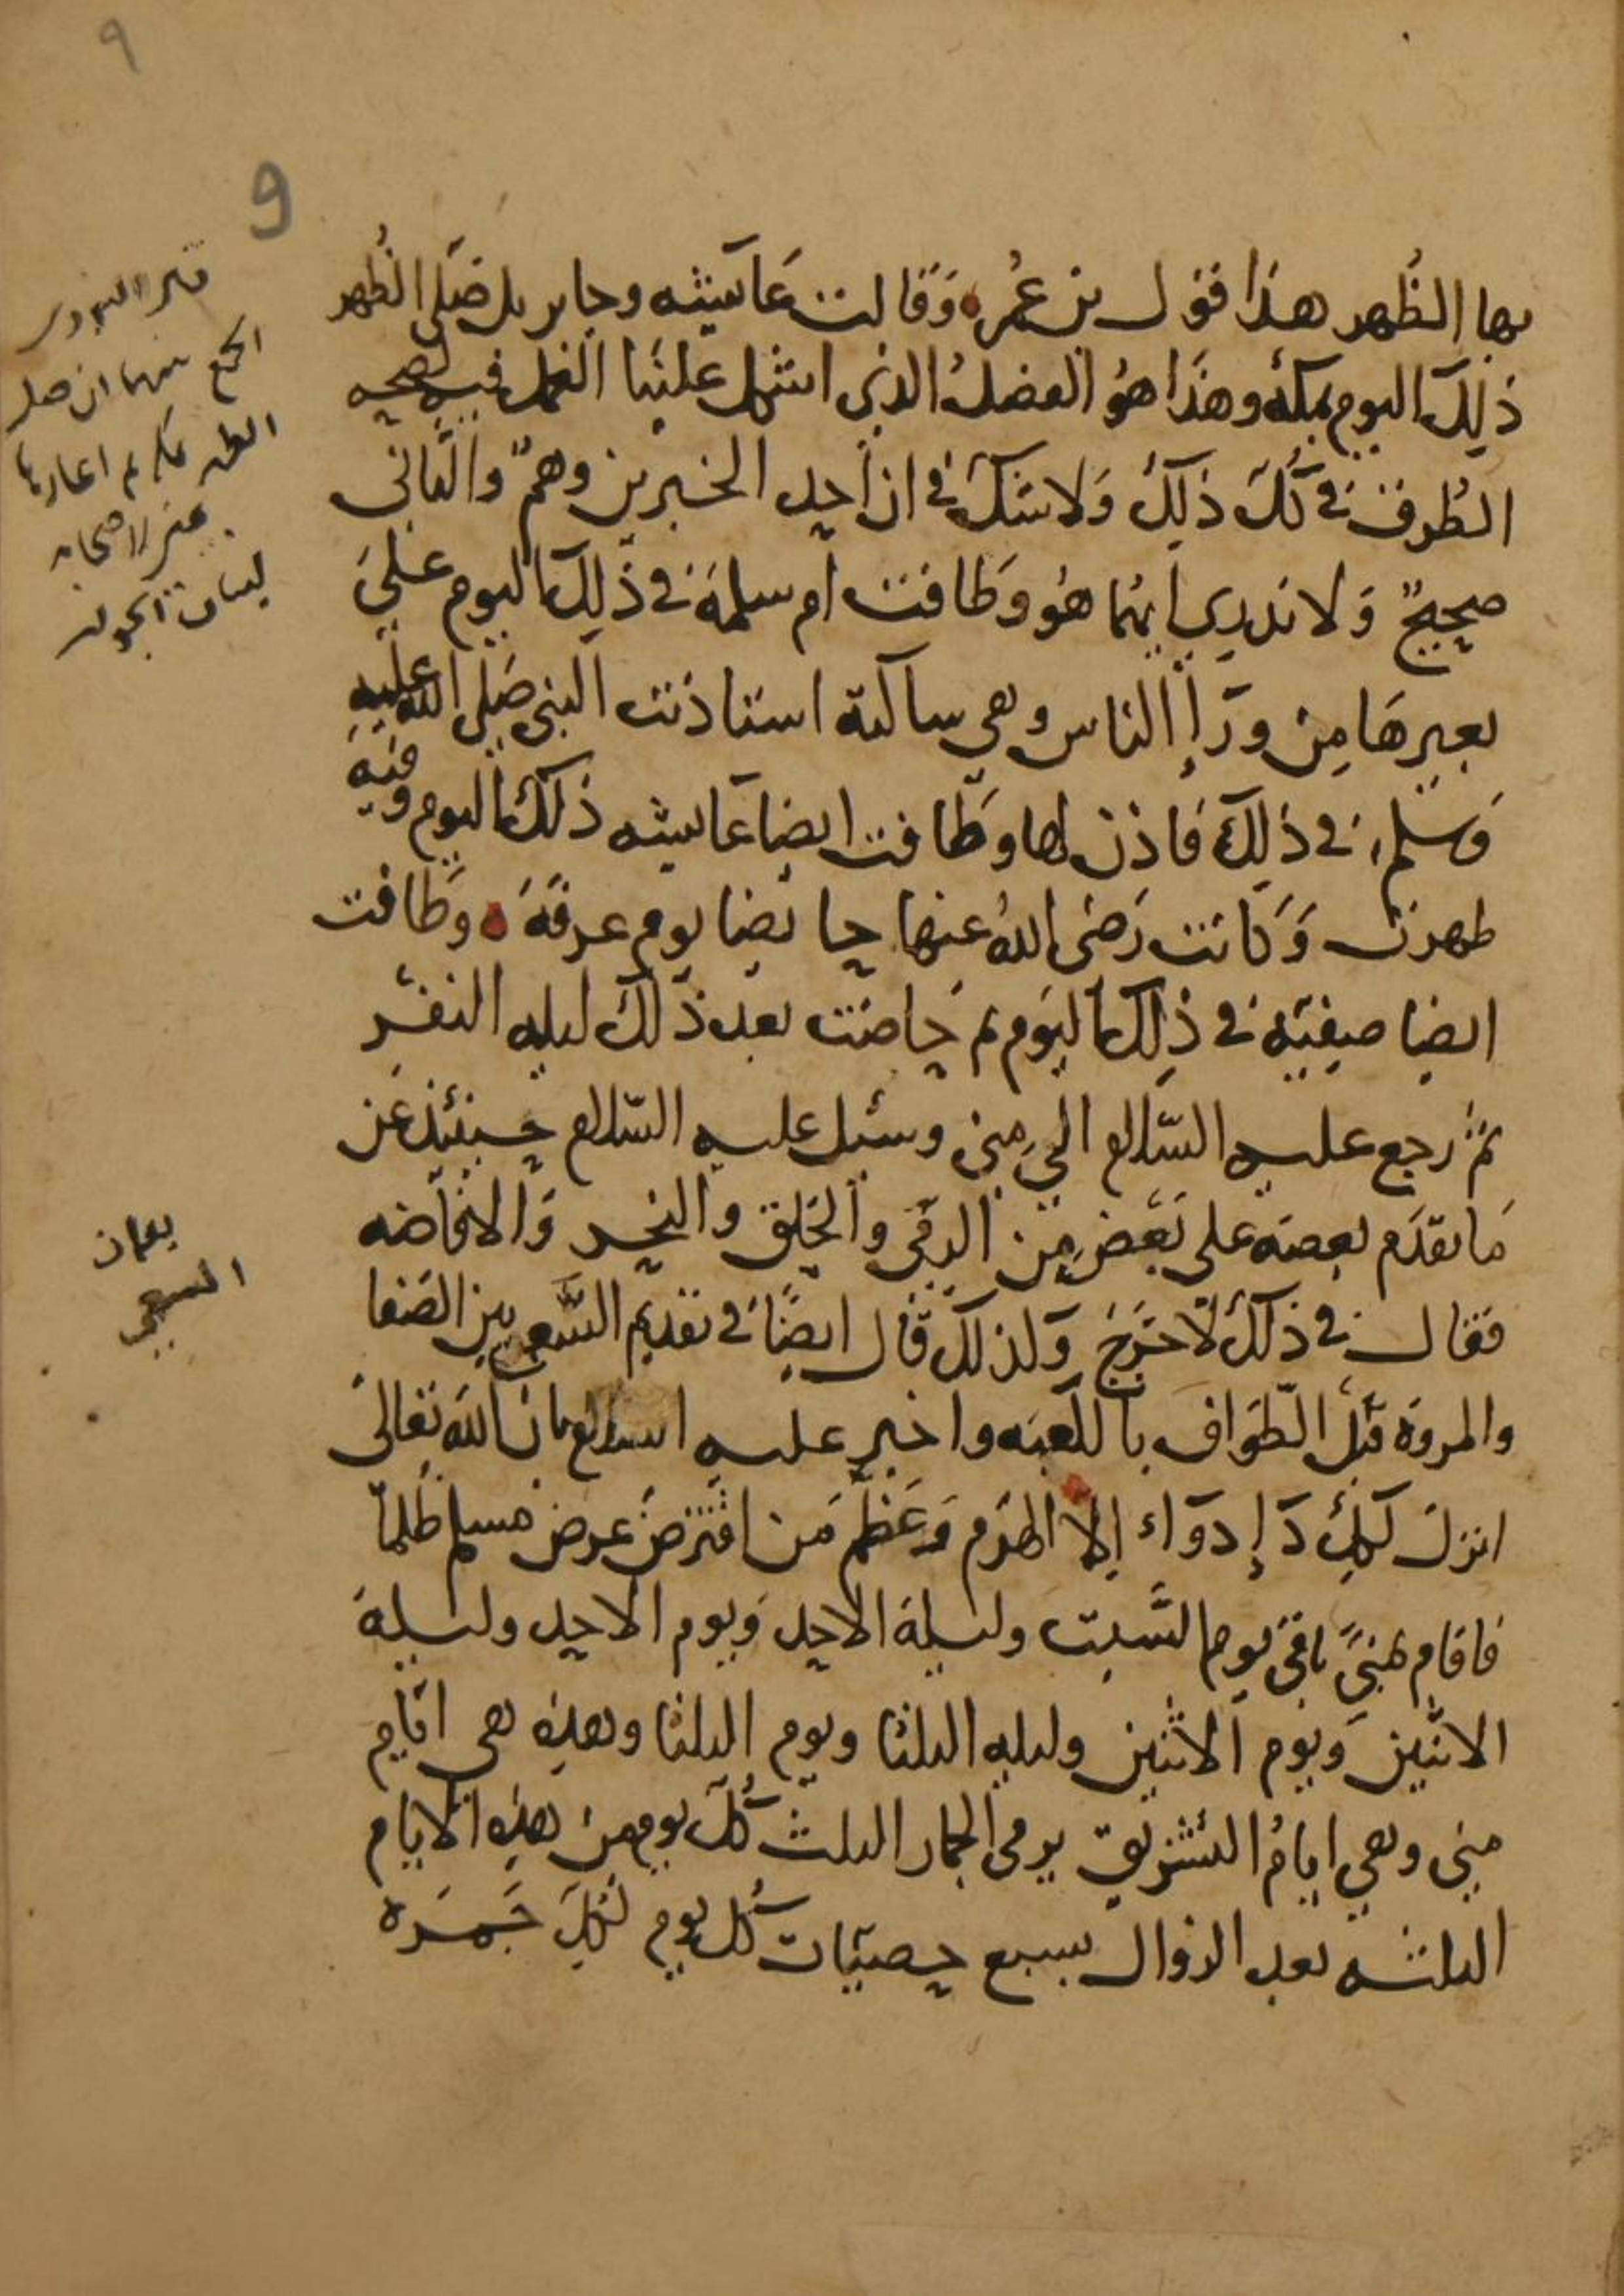 ٩
9
بها الظُهر هذا قول بن عُمر وَقالت عَائيشه وجابر بل صَلى الظُهر
ذلِكَ اليوم بمكة وهذا هُو الفصلُ الذي اشكل علينا الفصل فيه لصحه
الطُرق في كُل ذلِكَ وَلا شك في ان احد الخبرين وهمٌ والثاني
صحيحٌ وَلا ندري ايهُما هُو وَطافت ام سلمة في ذلِك اليوم علىَ
بعيرِهَا مِن ورَاءِ الناس وهي ساكية استاذنت النبي صَلى الله عليه
وَسَلم في ذلِكَ فَاذن لها وطَافت ايضا عَائيشه ذلكَ اليوم وفيه
طهرت وَكَانت رَضى اللهُ عنها حايضا يوم عرفَةَ وطَافت
ايضا صفية في ذلِك اليَوم ثم حَاضت بعد ذلك ليله النفر
ثمُ رجع عليه السّلام الي مِنى وسئل عليه السّلام حينئذٍ عَن
مَا تقدَم بعضه على بَعَض مِن الرمى والحَلق والنحر وَالافاضه
فقال في ذلكَ لا حَرَج وَلذلك قال ايضًا في تقديم السَّعي بين الصَفا
والمروَة قبل الطّوَاف بالكعبَه واخبر عليه السلام بان اللهَ تعَالىَ
انزل لكِل دَاءٍ دَوَاء اِلا الهَرَم وَعَظّم مَن اقترضَ عرض مسلم ظُلماً
فاقام بمنىً باقى يوم السَّبت وليلة الاحد وَيوم الاحد وليلة
الاثنين وَيوم الاثنين وليله الثلثا ويوم الثلثا وهذِه هي ايّام
مِنى وهي ايامُ التشريق يرمى الجمار الثلث كُل يوم مِن هذِه الايام
الثلثه بعد الزوال بسبع حصيَات كُل يوم لكِلَ جَمرَة
الجمع بينهما ان صلى
الظهر بمكه ثم اعادها
بمنى لاصحابه
لبيان الجواز
السعي